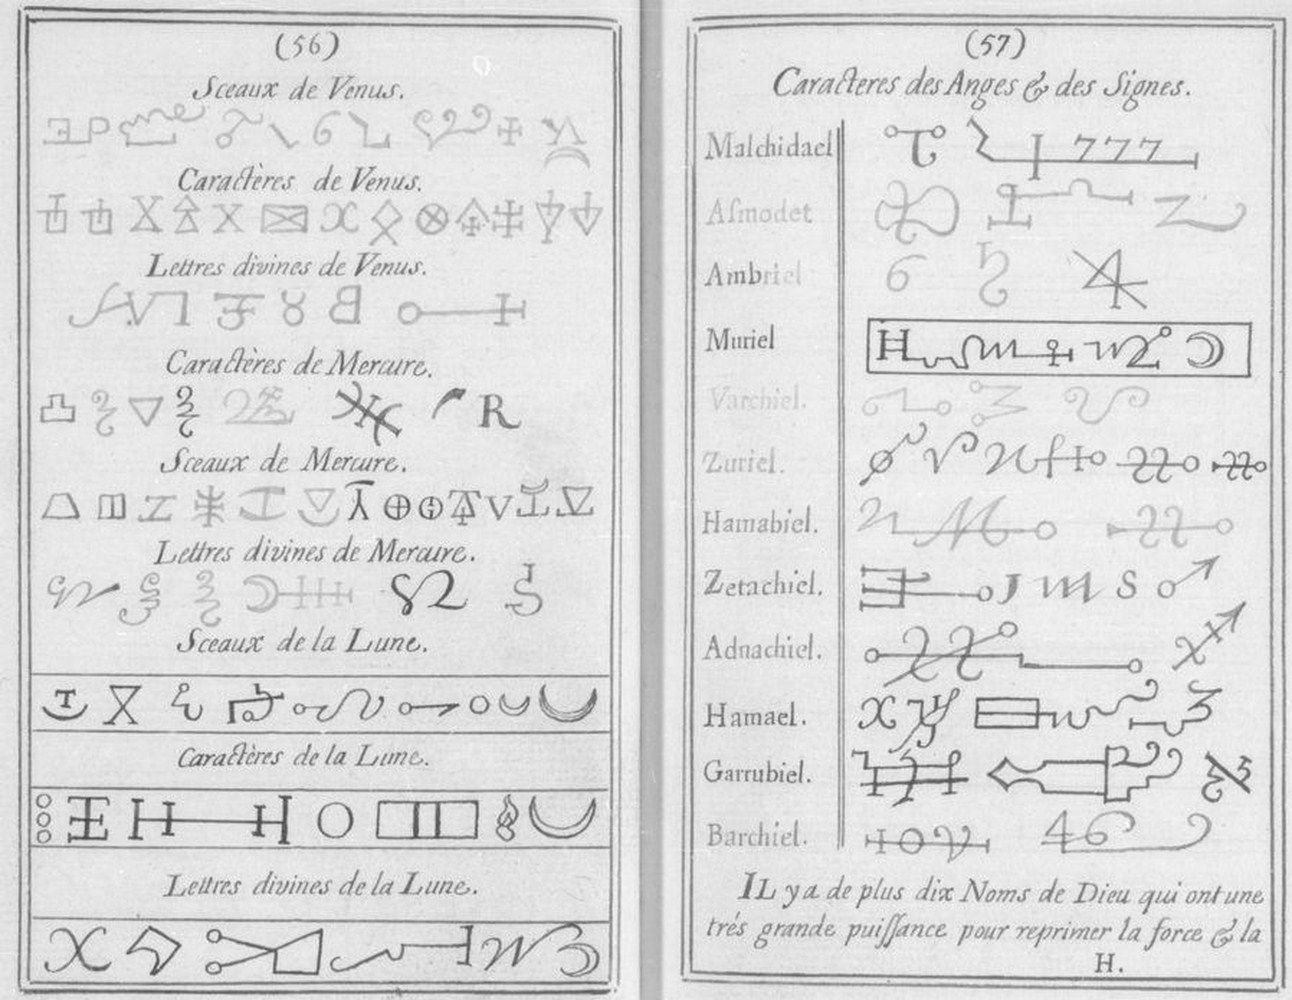 (56)
Sceaux de Venus.
Caractères de Venus.
Lettres divines de Venus.
Caractères de Mercure.
R
Sceaux de Mercure.
Lettres divines de Mercure.
Sceaux de la Lune.
Caractères de la Lune.
Lettres divines de la Lune.
(57)
Caracteres des Anges & des Signes.
Malchidael 777
Aſmodet
Ambriel
Muriel
Varchiel.
Zuriel.
Hamabiel.
Zetachiel.
Adnachiel.
Hamael.
Garrubiel.
Barchiel.
IL y a de plus dix Noms de Dieu qui ont une
trés grande puiſſance pour reprimer la force & la
H.